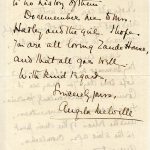 to no history of them.
Remember me to Mrs.
Hasley and the girls. I hope
you are all loving Lands House,
and that all goes well.
With kind regards
Sincerely yours,
Angela Melville